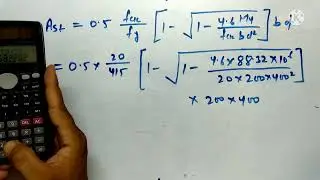 Ast = 0.5 fck/fy [1 - √(1 - 4.6 Mu/fck bd²)] bd
= 0.5 × 20/415 [1 - √(1 - 4.6 × 88.32 × 10⁶/20 × 200 × 400²)]
× 200 × 400